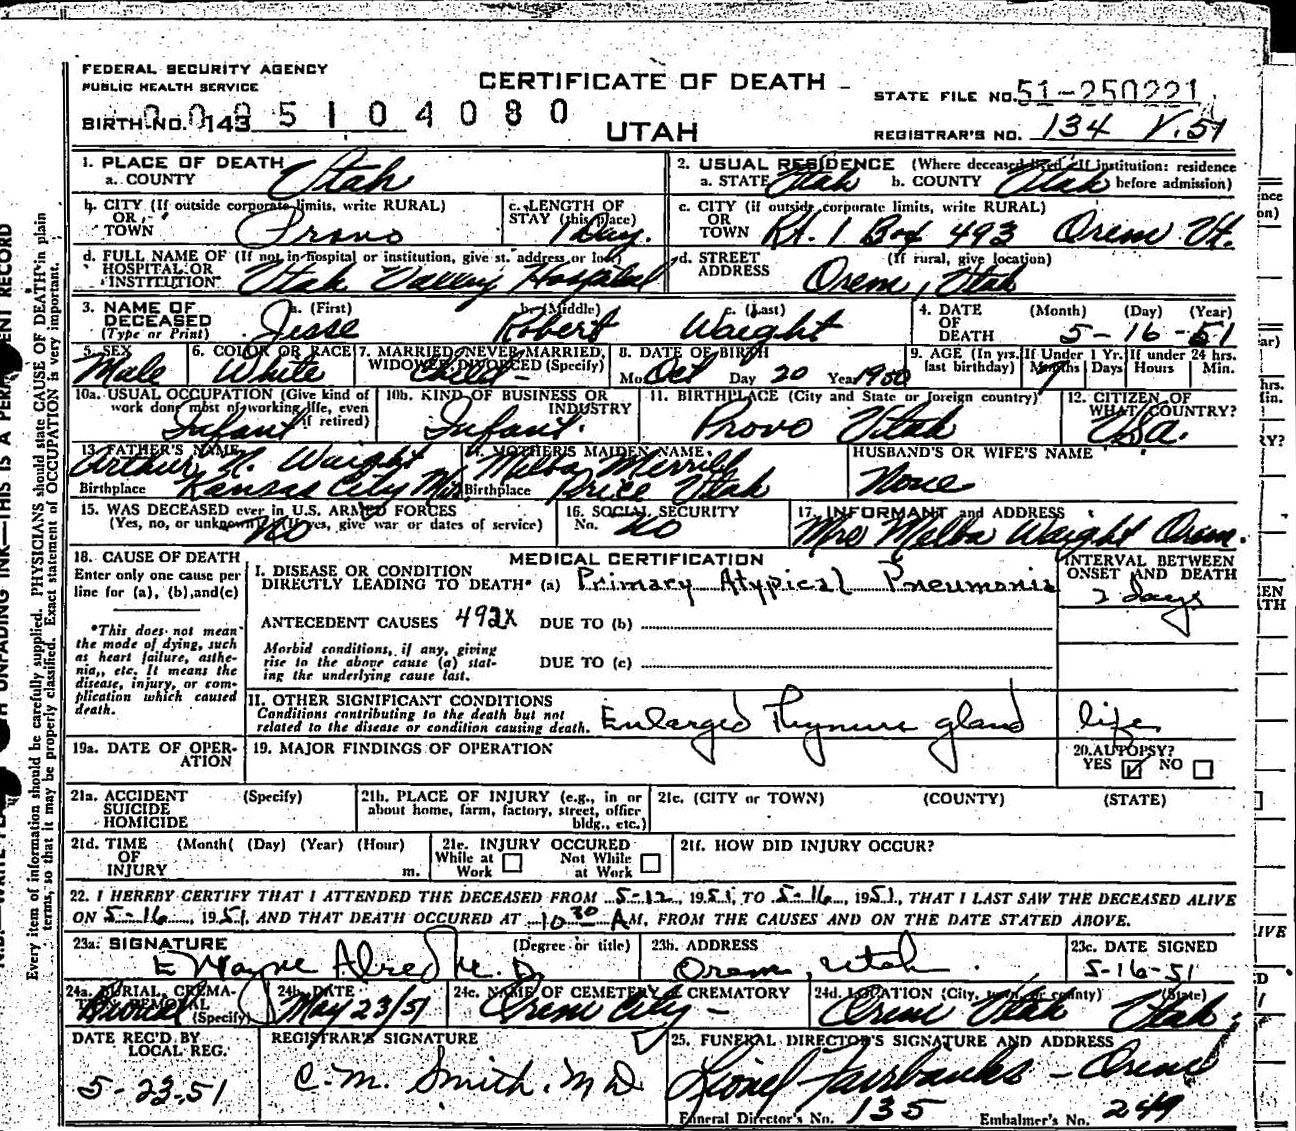 FEDERAL SECURITY AGENCY
PUBLIC HEALTH SERVICE
CERTIFICATE OF DEATH
UTAH
STATE FILE NO. 51-250221
BIRTH NO. 143 5104080
REGISTRAR'S NO. 134 V.51
1. PLACE OF DEATH
a. COUNTY Utah
2. USUAL RESIDENCE (Where deceased lived. If institution: residence before admission)
a. STATE Utah b. COUNTY Utah
b. CITY (If outside corporate limits, write RURAL) OR TOWN Provo
c. LENGTH OF STAY (this place) 1 Day.
c. CITY (if outside corporate limits, write RURAL) OR TOWN Rt. 1 Box 493 Orem Ut.
d. FULL NAME OF (If not in hospital or institution, give st. address or loc) HOSPITAL OR INSTITUTION Utah Valley Hospital
d. STREET ADDRESS (If rural, give location) Orem, Utah
3. NAME OF DECEASED (Type or Print) a. (First) Jesse b. (Middle) Robert c. (Last) Waight
4. DATE OF DEATH (Month) (Day) (Year) 5-16-51
5. SEX Male
6. COLOR OR RACE White
7. MARRIED, NEVER MARRIED, WIDOWED, DIVORCED (Specify) Child-
8. DATE OF BIRTH Mo. Oct Day 20 Year 1950
9. AGE (In yrs. last birthday) If Under 1 Yr. Months 7 Days If under 24 hrs. Hours Min.
10a. USUAL OCCUPATION (Give kind of work done most of working life, even if retired) Infant
10b. KIND OF BUSINESS OR INDUSTRY Infant.
11. BIRTHPLACE (City and State or foreign country) Provo Utah
12. CITIZEN OF WHAT COUNTRY? USA.
13. FATHER'S NAME Arthur N. Waight
Birthplace Kansas City Mo.
14. MOTHER'S MAIDEN NAME Melba Merrill
Birthplace Price Utah
HUSBAND'S OR WIFE'S NAME None
15. WAS DECEASED ever in U.S. ARMED FORCES (Yes, no, or unknown) (If yes, give war or dates of service) No
16. SOCIAL SECURITY No. No
17. INFORMANT and ADDRESS Mrs Melba Waight Orem.
18. CAUSE OF DEATH
Enter only one cause per line for (a), (b), and (c)
*This does not mean the mode of dying, such as heart failure, asthenia, etc. It means the disease, injury, or complication which caused death.
MEDICAL CERTIFICATION
I. DISEASE OR CONDITION DIRECTLY LEADING TO DEATH* (a) Primary Atypical Pneumonia
INTERVAL BETWEEN ONSET AND DEATH
2 days
ANTECEDENT CAUSES 492X DUE TO (b)
Morbid conditions, if any, giving rise to the above cause (a) stating the underlying cause last.
DUE TO (c)
II. OTHER SIGNIFICANT CONDITIONS
Conditions contributing to the death but not related to the disease or condition causing death. Enlarged Thymus gland life
19a. DATE OF OPERATION
19. MAJOR FINDINGS OF OPERATION
20. AUTOPSY? YES ☑ NO ☐
21a. ACCIDENT SUICIDE HOMICIDE (Specify)
21b. PLACE OF INJURY (e.g., in or about home, farm, factory, street, office bldg., etc.)
21c. (CITY or TOWN) (COUNTY) (STATE)
21d. TIME OF INJURY (Month) (Day) (Year) (Hour) m.
21e. INJURY OCCURED While at Work ☐ Not While at Work ☐
21f. HOW DID INJURY OCCUR?
22. I HEREBY CERTIFY THAT I ATTENDED THE DECEASED FROM 5-12, 1951, TO 5-16, 1951, THAT I LAST SAW THE DECEASED ALIVE
ON 5-16, 1951 AND THAT DEATH OCCURED AT 10 30 A M, FROM THE CAUSES AND ON THE DATE STATED ABOVE.
23a. SIGNATURE (Degree or title) E Wayne Allred M. D.
23b. ADDRESS Orem, Utah
23c. DATE SIGNED 5-16-51
24a. BURIAL, CREMATION, REMOVAL (Specify) Burial
24b. DATE May 23/51
24c. NAME OF CEMETERY & CREMATORY Orem City -
24d. LOCATION (City, town, or county) (State) Orem Utah Utah
DATE REC'D BY LOCAL REG. 5-23-51
REGISTRAR'S SIGNATURE C. M. Smith. M D
25. FUNERAL DIRECTOR'S SIGNATURE AND ADDRESS Lionel Fairbanks - Orem
Funeral Director's No. 135 Embalmer's No. 249
Every item of information should be carefully supplied. PHYSICIANS should state CAUSE OF DEATH in plain
terms, so that it may be properly classified. Exact statement of OCCUPATION is very important.